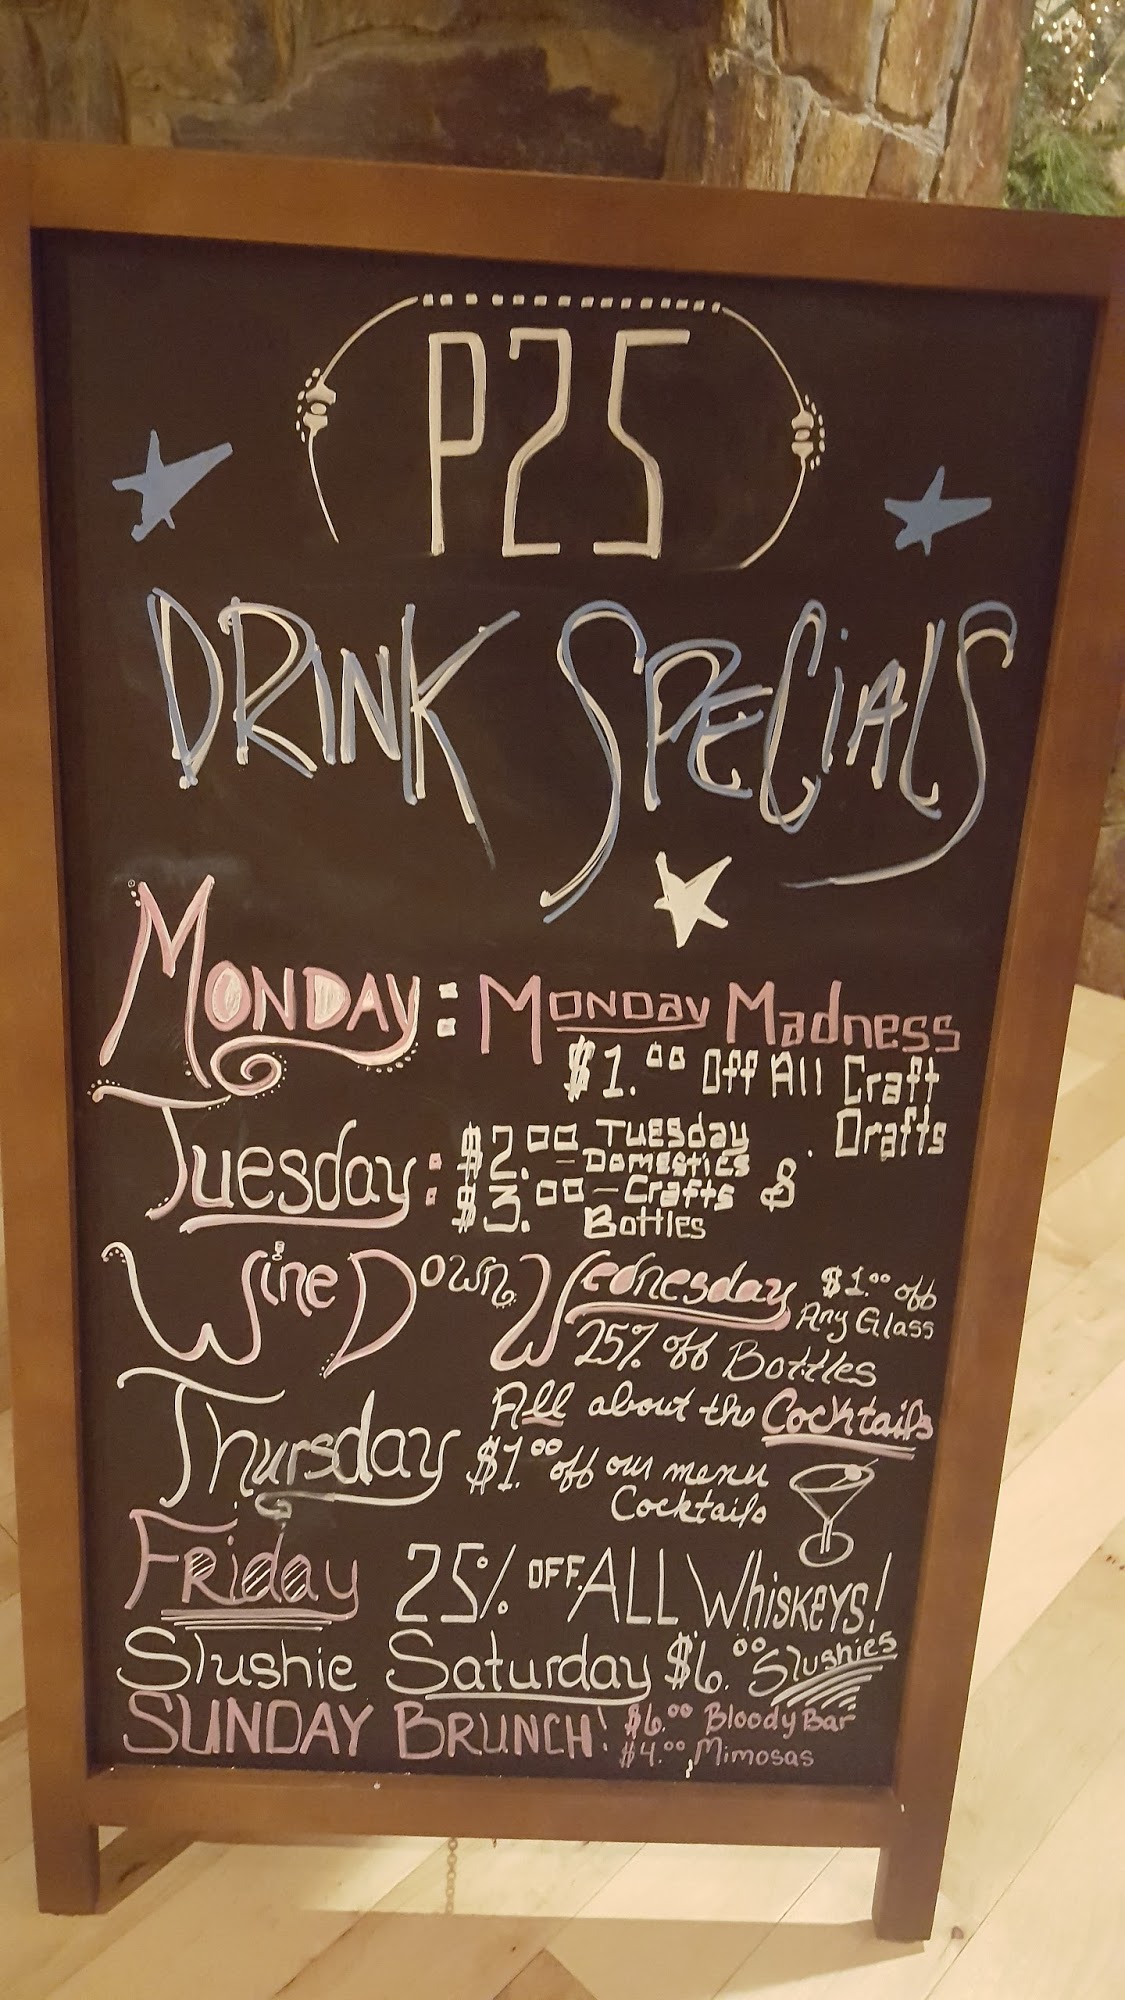 P25
DRINK SPECiALS
MONDAY: MONDAY Madness
$1.00 Off All Craft
Drafts
Tuesday: $2.00 TUESday
- DOMESTICS &
$3.00 - Crafts
Bottles
Wine Down Wednesday $1.00 off
Any Glass
25% off Bottles
Thursday All about the Cocktails
$1.00 off our menu
Cocktails
FRiday 25% OFF ALL WhiskeyS!
Slushie Saturday $6.00 Slushies
SUNDAY BRUNCH! $6.00 Bloody Bar
$4.00 Mimosas